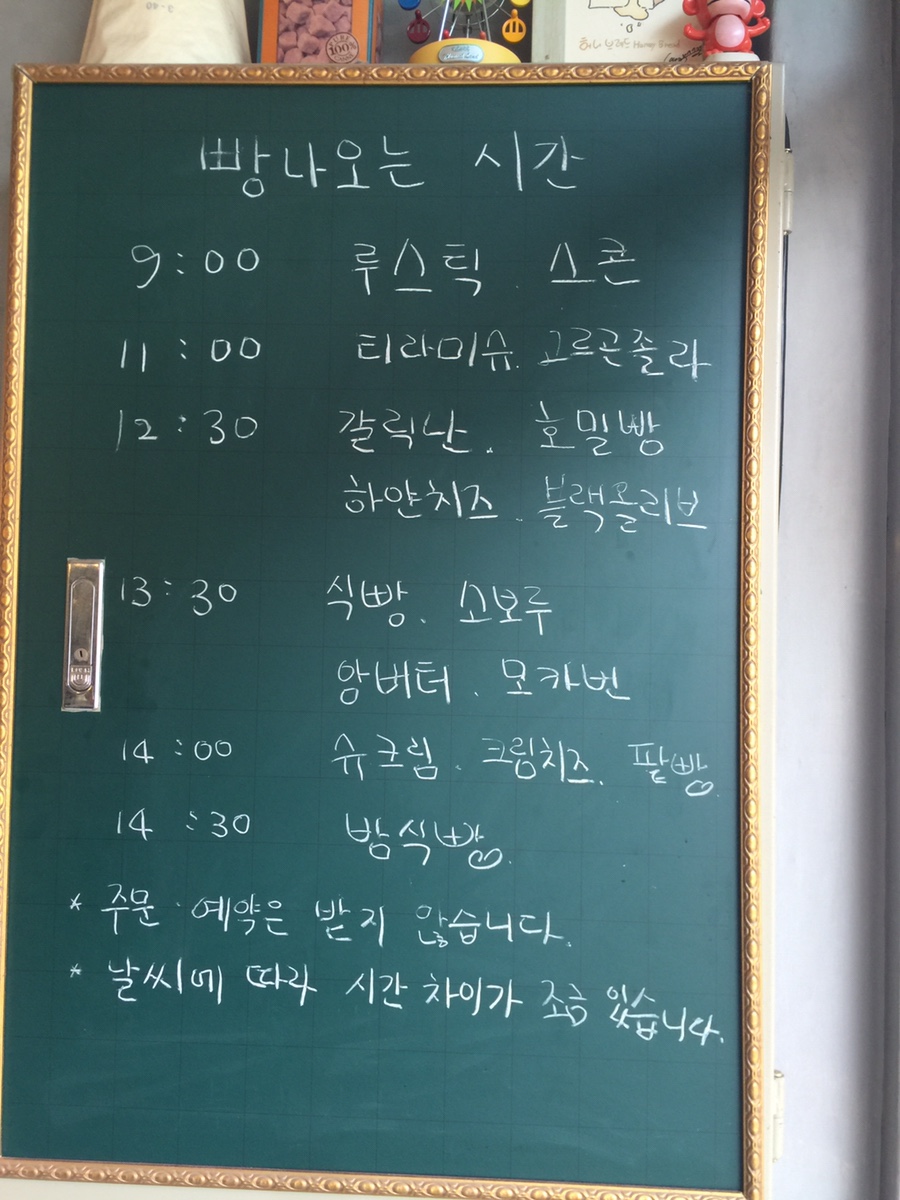 빵나오는 시간
9:00 루스틱. 스콘
11:00 티라미슈. 고르곤졸라
12:30 갈릭난. 호밀빵
하얀치즈. 블랙올리브
13:30 식빵. 소보루
앙버터. 모카번
14:00 슈크림. 크림치즈. 팥빵
14:30 밤식빵.
* 주문·예약은 받지 않습니다.
* 날씨에 따라 시간 차이가 조금 있습니다.